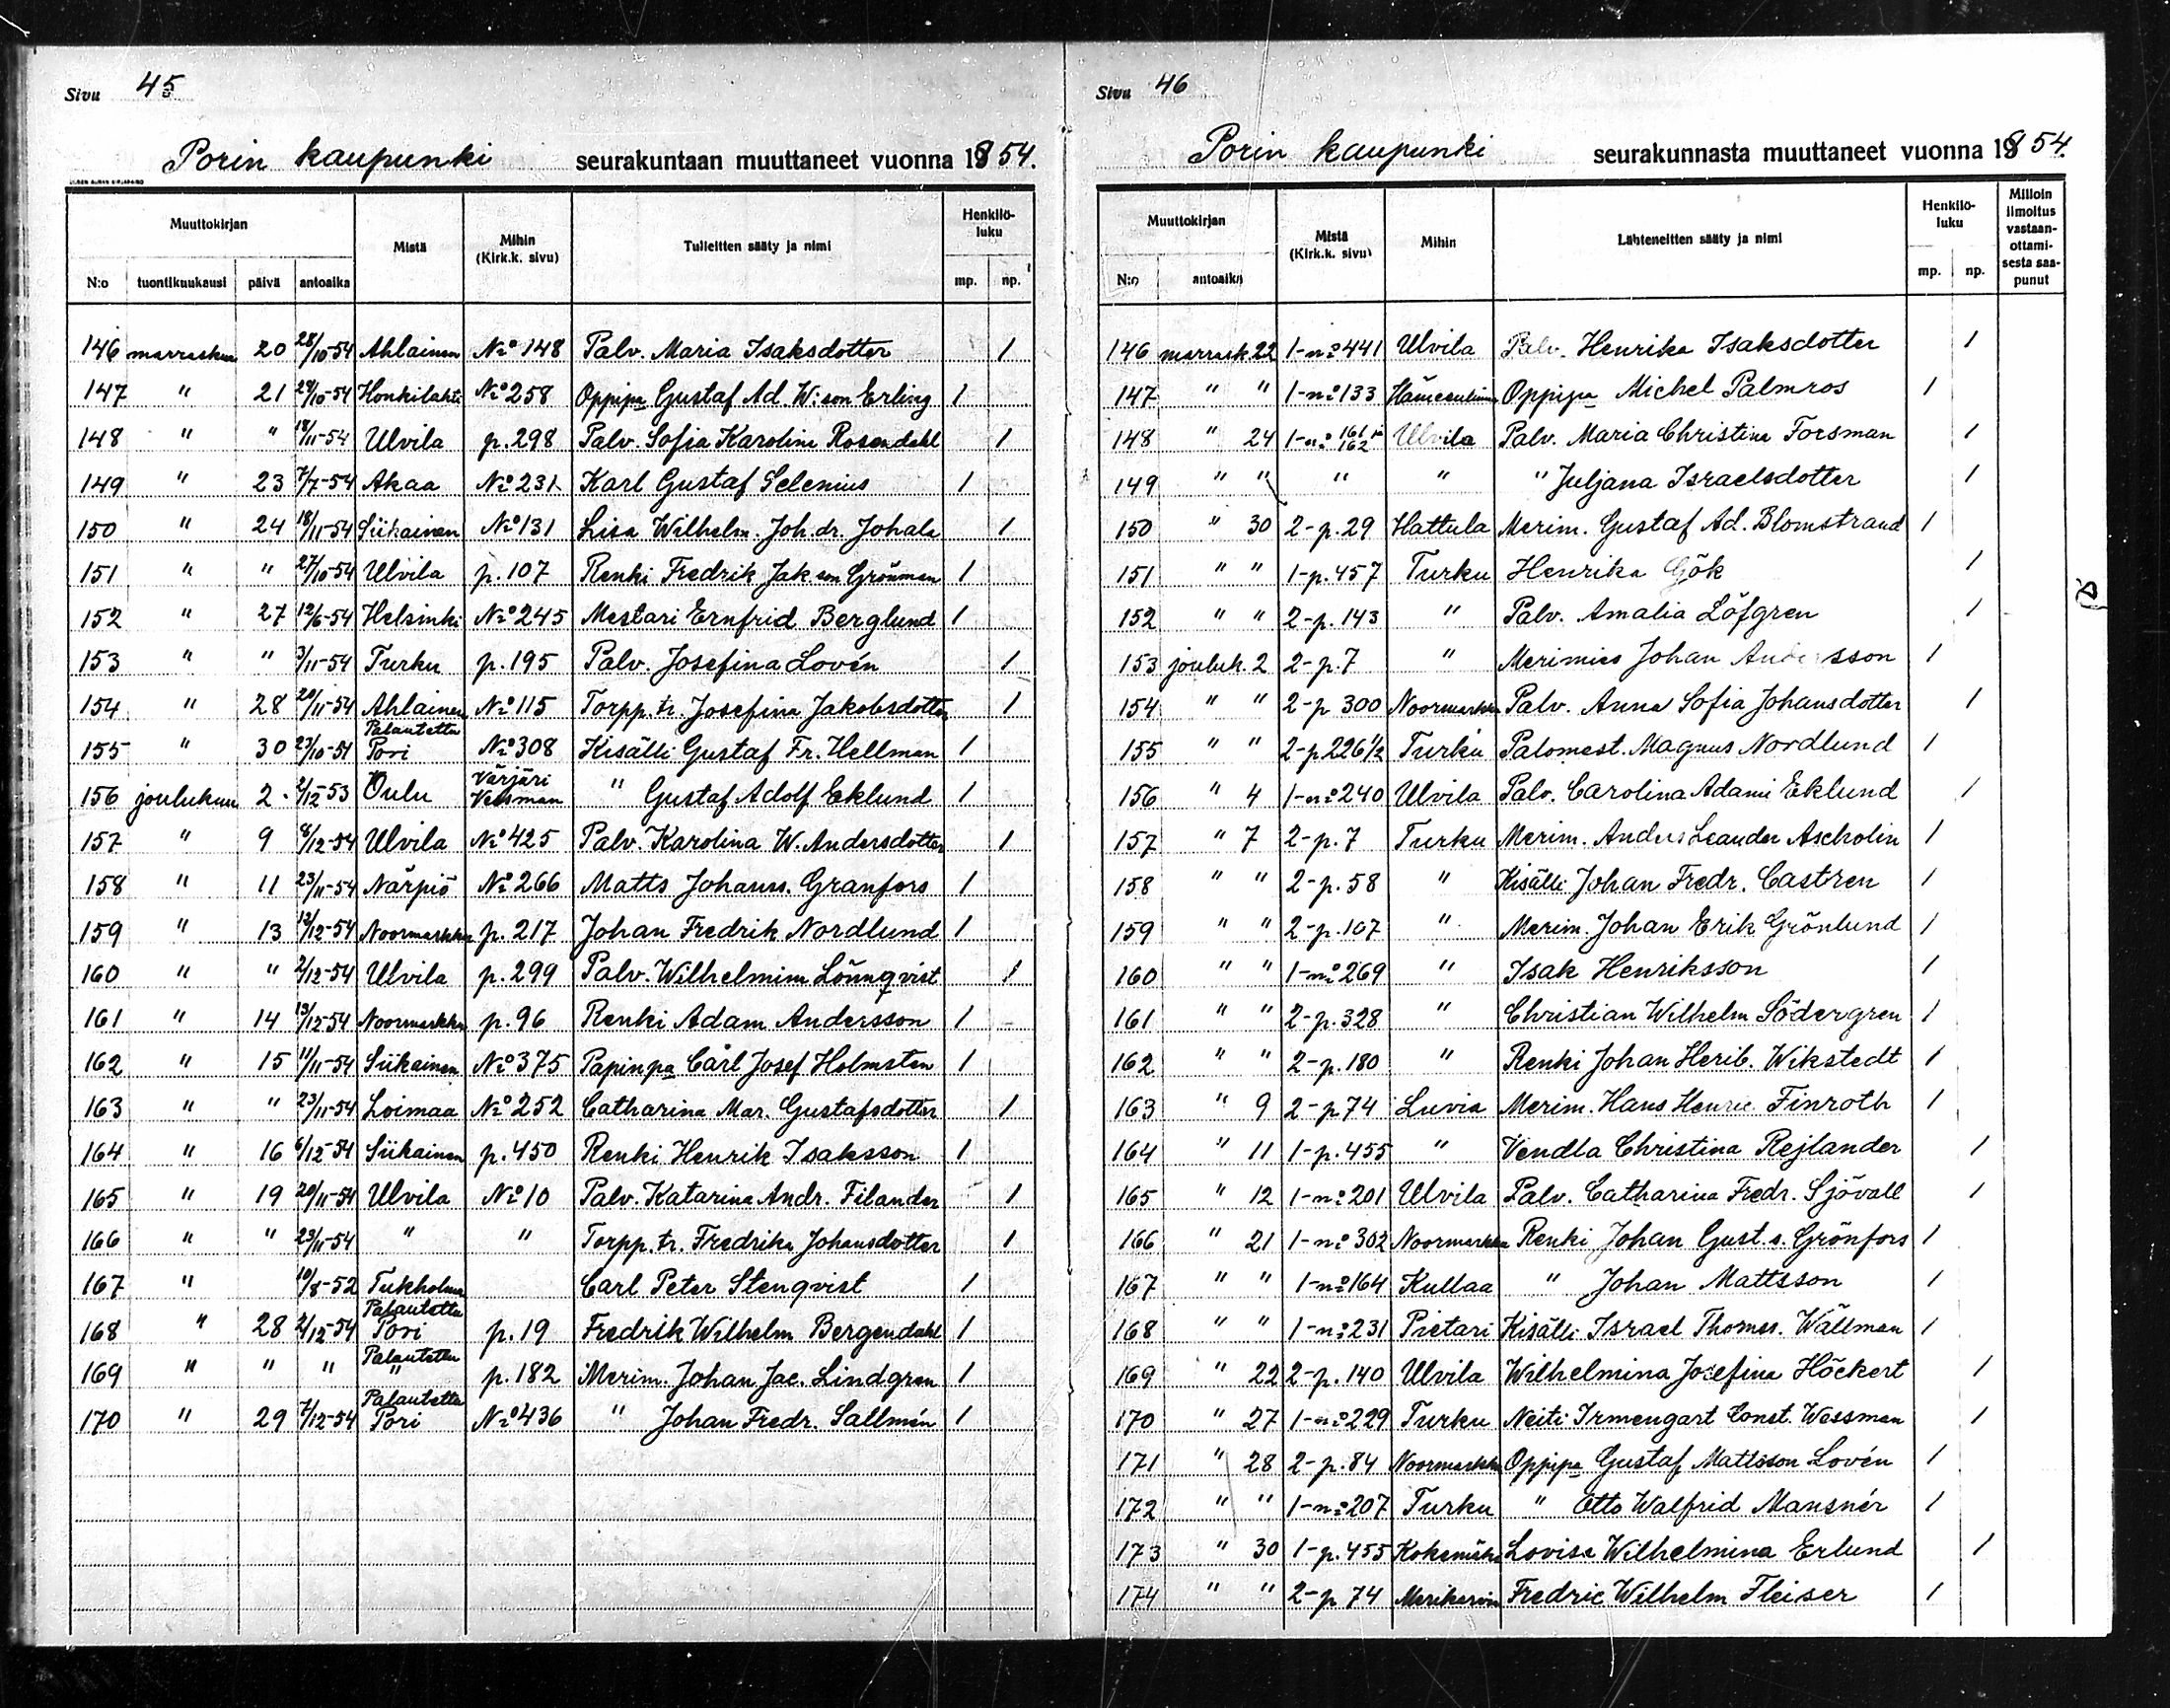 Sivu 45
Porin kaupunki seurakuntaan muuttaneet vuonna 1854.
Muuttokirjan Mistä Mihin (Kirk.k. sivu) Tulleitten sääty ja nimi Henkilö-luku
N:o tuontikuukausi päivä antoaika mp. np.
146 marraskuu 20 28/10-54 Ahlainen No 148 Palv. Maria Isaksdotter 1
147 " 21 28/10-54 Honkilahti No 258 Oppipa Gustaf Ad. W:son Erling 1
148 " " 18/11-54 Ulvila p. 298 Palv. Sofia Karolina Rosendahl 1
149 " 23 7/7-54 Akaa No 231 Karl Gustaf Selenius 1
150 " 24 18/11-54 Siikainen No 131 Lisa Wilhelm. Joh. dr. Johala 1
151 " " 27/10-54 Ulvila p. 107 Renki Fredrik Jak. son Grönman 1
152 " 27 12/6-54 Helsinki No 245 Mestari Ernfrid Berglund 1
153 " " 3/11-54 Turku p. 195 Palv. Josefina Lovén 1
154 " 28 20/11-54 Ahlainen No 115 Torpp. tr. Josefina Jakobsdotter 1
155 " 30 23/10-54 Palautettu Pori No 308 Kisälli Gustaf Fr. Hellman 1
156 joulukuu 2 2/12-53 Oulu Värjäri Vessman " Gustaf Adolf Eklund 1
157 " 9 8/12-54 Ulvila No 425 Palv. Karolina W. Andersdotter 1
158 " 11 23/11-54 Närpiö No 266 Matts Johanss. Granfors 1
159 " 13 12/12-54 Noormarkku p. 217 Johan Fredrik Nordlund 1
160 " " 2/12-54 Ulvila p. 299 Palv. Wilhelmina Lönnqvist 1
161 " 14 13/12-54 Noormarkku p. 96 Renki Adam Andersson 1
162 " 15 11/11-54 Siikainen No 375 Papinpa Carl Josef Holmsten 1
163 " " 23/11-54 Loimaa No 252 Catharina Mar. Gustafsdotter 1
164 " 16 6/12-54 Siikainen p. 450 Renki Henrik Isaksson 1
165 " 19 20/11-54 Ulvila No 10 Palv. Katarina Andr. Filander 1
166 " " 23/11-54 " " Torpp. tr. Fredrika Johansdotter 1
167 " 10/8-52 Tukholma Carl Peter Stenqvist 1
168 " 28 2/12-54 Palautettu Pori p. 19 Fredrik Wilhelm Bergendahl 1
169 " " " Palautettu " p. 182 Merim. Johan Jac. Lindgren 1
170 " 29 7/12-54 Palautettu Pori No 436 " Johan Fredr. Sallmén 1
Sivu 46
Porin kaupunki seurakunnasta muuttaneet vuonna 1854.
Muuttokirjan Mistä (Kirk.k. sivu) Mihin Lähteneitten sääty ja nimi Henkilö-luku Milloin ilmoitus vastaan-ottami-sesta saa-punut
N:o antoaika mp. np.
146 marrask. 22 1-no 441 Ulvila Palv. Henrika Isaksdotter 1
147 " " 1-no 133 Hämeenlinna Oppipa Michel Palmros 1
148 " 24 1-no 161 ja 162 Ulvila Palv. Maria Christina Forsman 1
149 " " " " " Juljana Israelsdotter 1
150 " 30 2-p. 29 Hattula Merim. Gustaf Ad. Blomstrand 1
151 " " 1-p. 457 Turku Henrika Gök 1
152 " " 2-p. 143 " Palv. Amalia Löfgren 1
153 jouluk. 2 2-p. 7 " Merimies Johan Andersson 1
154 " " 2-p 300 Noormarkku Palv. Anna Sofia Johansdotter 1
155 " " 2-p 226 1/2 Turku Palomest. Magnus Nordlund 1
156 " 4 1-no 240 Ulvila Palv. Carolina Adami Eklund 1
157 " 7 2-p. 7 Turku Merim. Anders Leander Ascholin 1
158 " " 2-p. 58 " Kisälli Johan Fredr. Castren 1
159 " " 2-p. 107 " Merim. Johan Erik Grönlund 1
160 " " 1-no 269 " Isak Henriksson 1
161 " " 2-p. 328 " Christian Wilhelm Södergren 1
162 " " 2-p. 180 " Renki Johan Herib. Wikstedt 1
163 " 9 2-p 74 Luvia Merim. Hans Henric Finroth 1
164 " 11 1-p. 455 " Vendla Christina Rejlander 1
165 " 12 1-no 201 Ulvila Palv. Catharina Fredr. Sjövall 1
166 " 21 1-no 302 Noormarkku Renki Johan Gust. s. Grönfors 1
167 " " 1-no 164 Kullaa " Johan Mattsson 1
168 " " 1-no 231 Pietari Kisälli Israel Thomas. Wällman 1
169 " 22 2-p. 140 Ulvila Wilhelmina Josefina Höckert 1
170 " 27 1-no 229 Turku Neiti Irmengart Const. Wessman 1
171 " 28 2-p. 84 Noormarkku Oppipa Gustaf Mattsson Lovén 1
172 " " 1-no 207 Turku " Otto Walfrid Mansnér 1
173 " 30 1-p. 455 Kokemäki Lovisa Wilhelmina Erlund 1
174 " " 2-p 74 Merikarvia Fredric Wilhelm Fleiser 1